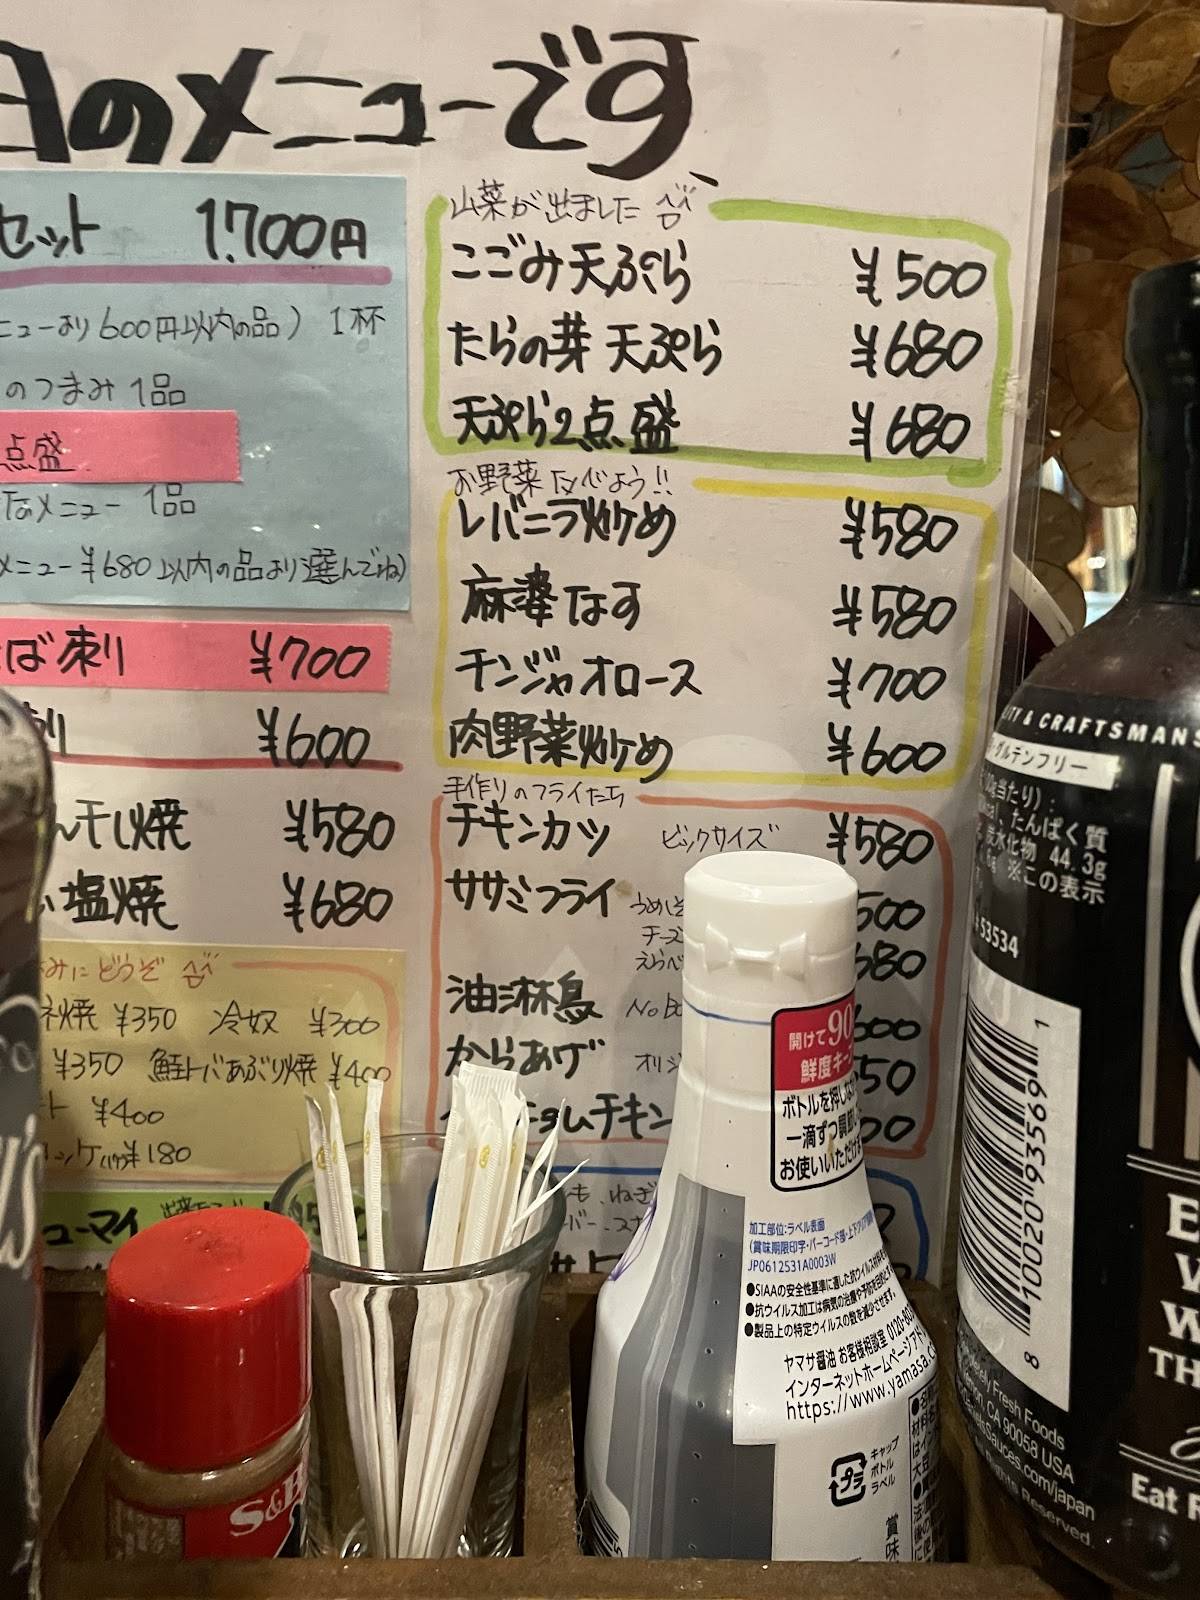 日のメニューです、
セット 1.700円
ニューより600円以内の品) 1杯
のつまみ 1品
点盛
なメニュー 1品
メニュー¥680以内の品より選んでね)
ば刺 ¥700
刺 ¥600
ん干し焼 ¥580
塩焼 ¥680
みにどうぞ
¥350 冷奴 ¥300
¥350 鮭トバあぶり焼 ¥400
ト ¥400
¥180
ューマイ
山菜が出ました
こごみ天ぷら ¥500
たらの芽天ぷら ¥680
天ぷら2点盛 ¥680
お野菜たべよう!!
レバニラ炒め ¥580
麻婆なす ¥580
チンジャオロース ¥700
肉野菜炒め ¥600
手作りのフライたち
チキンカツ ビックサイズ ¥580
ササミフライ うめしそ 500
チーズ 680
えらべ
油淋鳥 600
からあげ オリジ 50
チキン 00
開けて90
鮮度キー
ボトルを押しな
一滴ずつ調節
お使いいただけ
加工部位:ラベル表面
(賞味期限印字・バーコード部・上下
JP0612531A0003W
●SIAAの安全性基準に適した抗ウイルス材料を
●抗ウイルス加工は病気の治療や予防を目的と
●製品上の特定ウイルスの数を減少させます。
ヤマサ醤油 お客様相談室 0120-80
インターネットホームページアド
https://www.yamasa.c
プラ
キャップ
ボトル
ラベル
賞味
S&B
ITY & CRAFTSMANS
グルテンフリー
当たり):
たんぱく質
炭水化物 44.3g
※この表示
53534
8 10020 93569 1
Fresh Foods
CA 90058 USA
Sauces.com/japan
Rights Reserved.
Eat